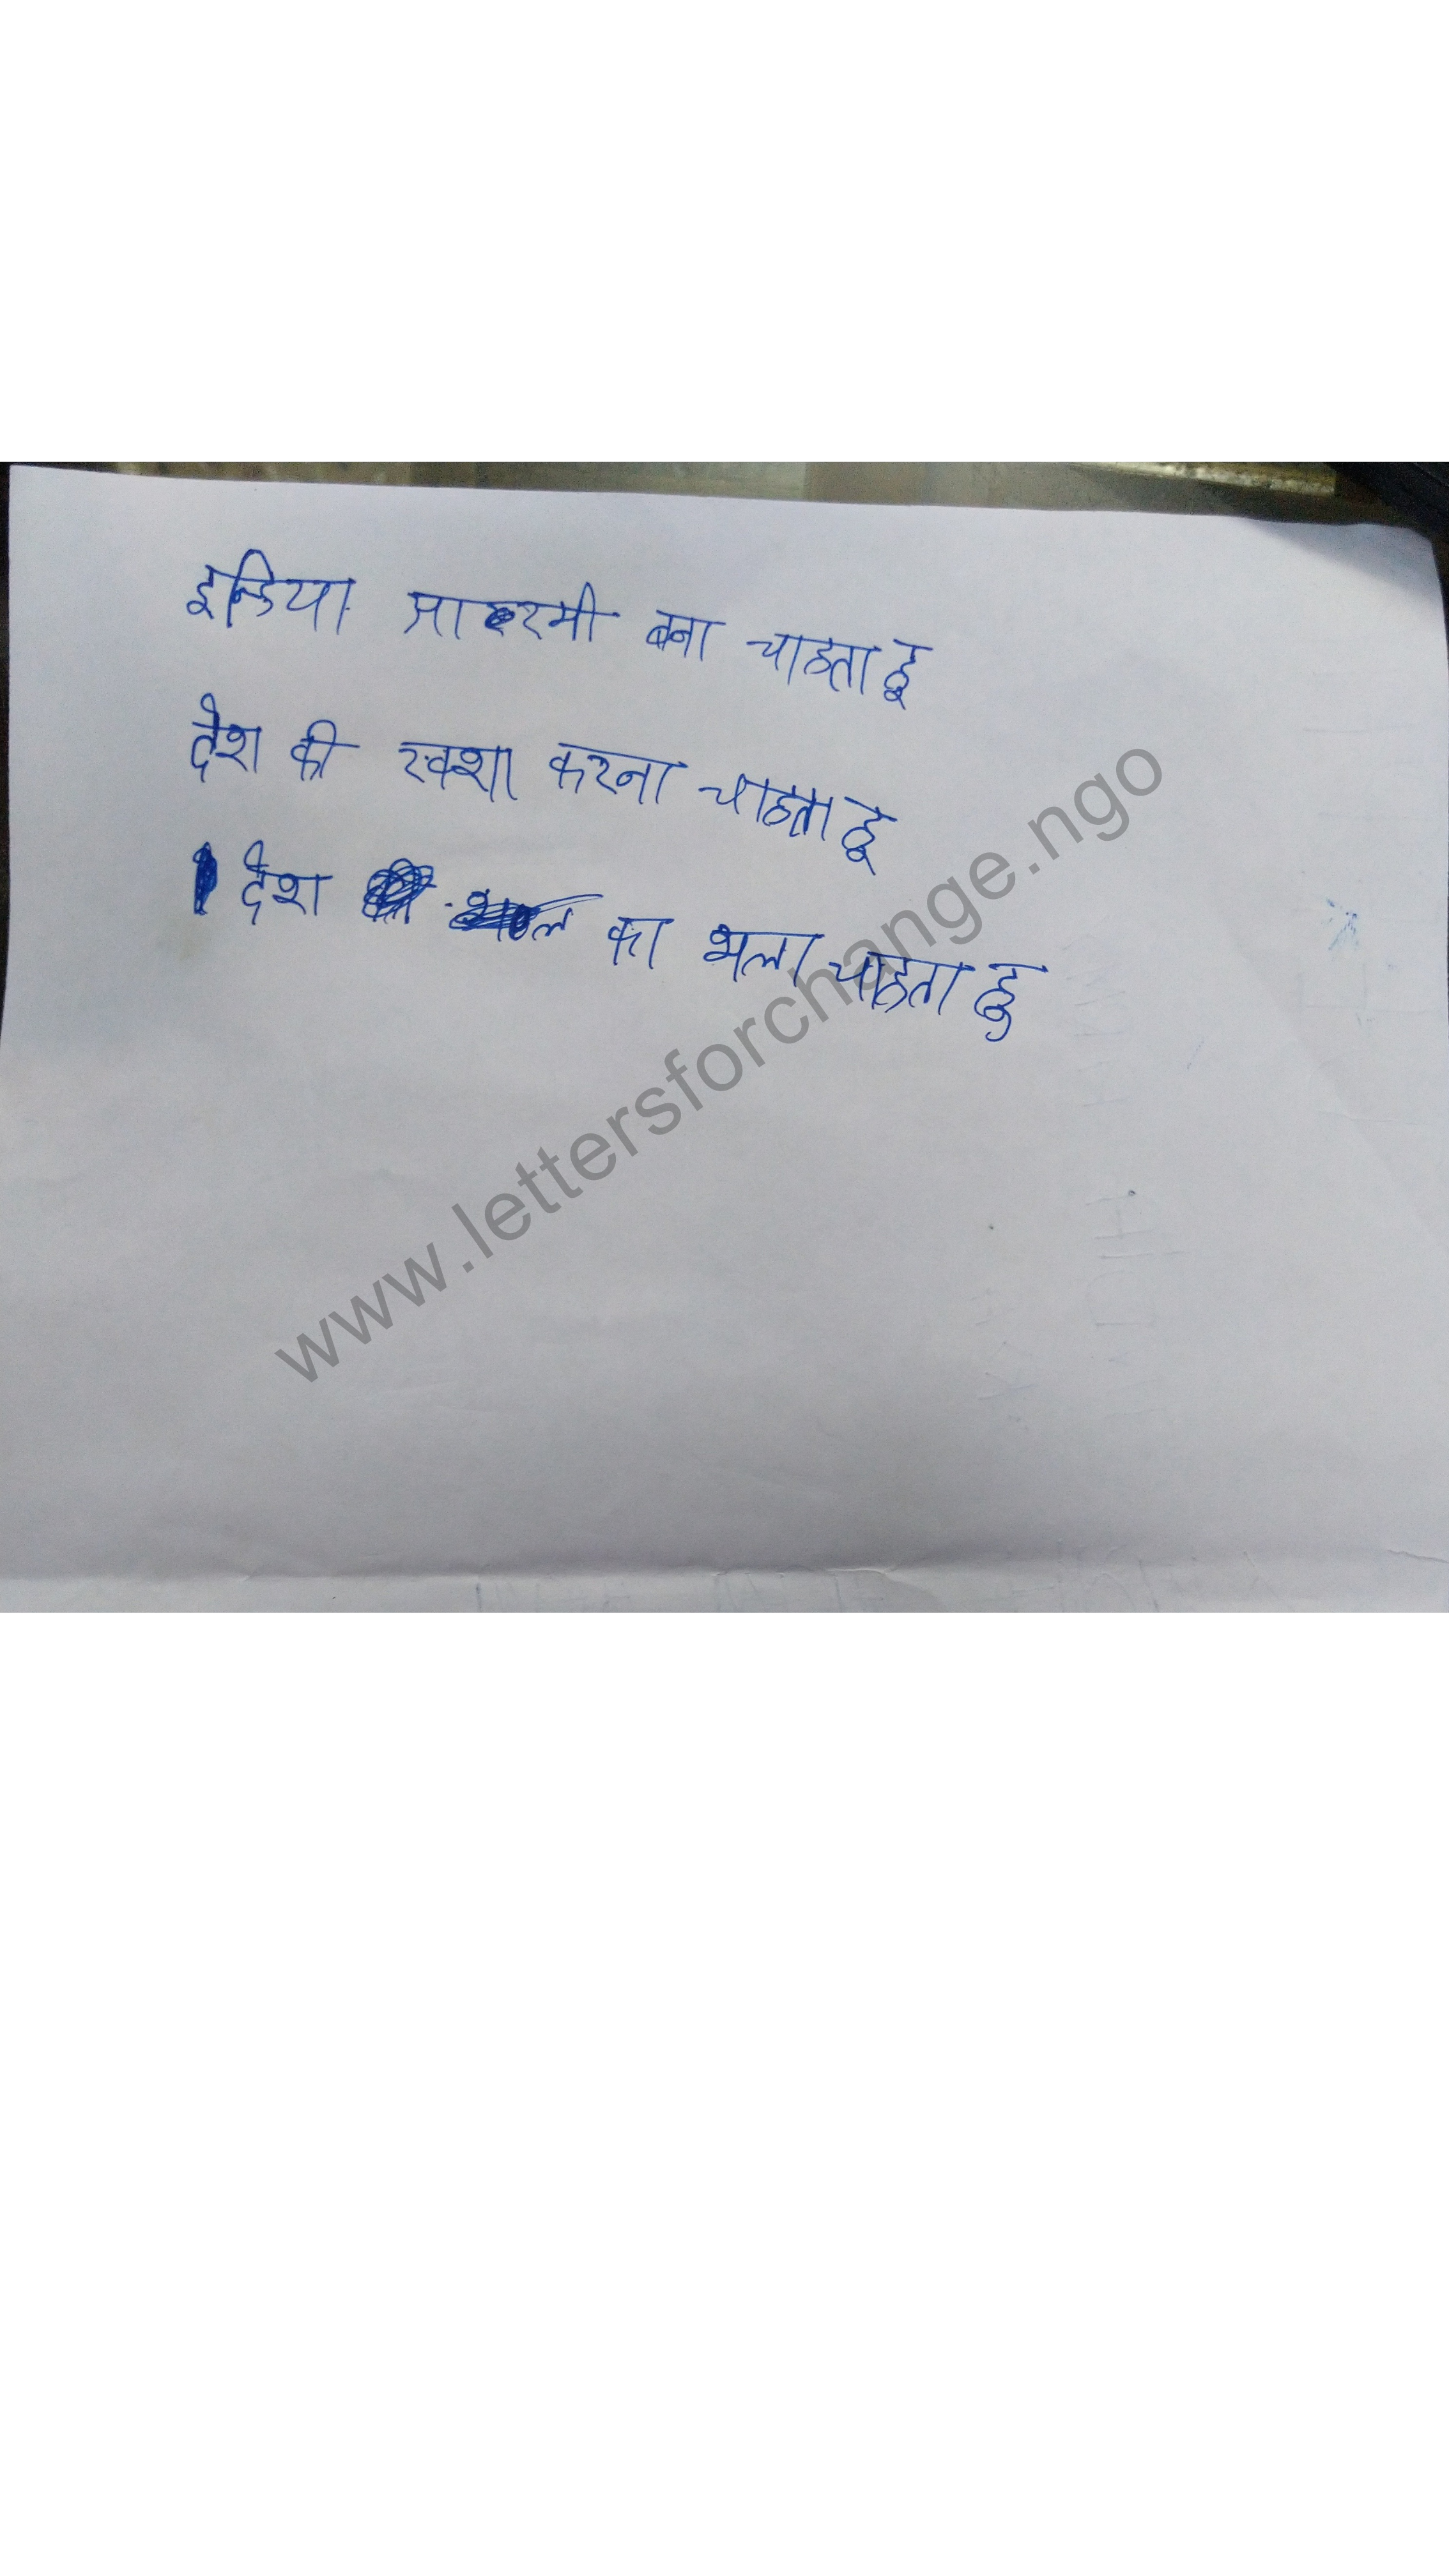 इन्डिया आरमी बना चाहता हू
देश की रक्शा करना चाहता हू
देश का भला चाहता हु
www.lettersforchange.ngo